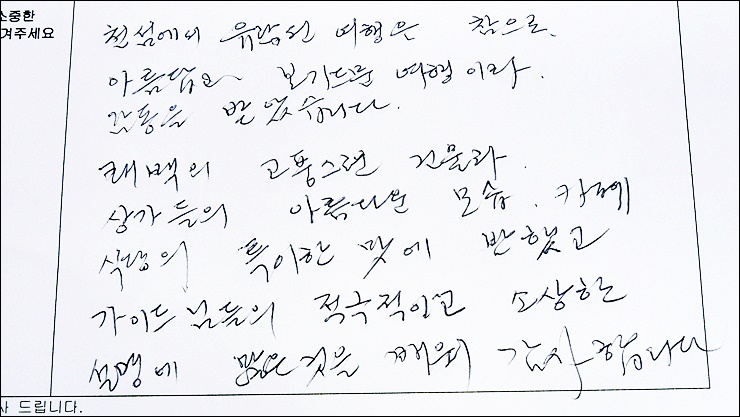 소중한
겨주세요
천섬에서 유람선 여행은 참으로.
아름답고 보기드문 여행이라.
감동을 받았습니다.
퀘백의 고풍스런 건물과.
상가들의 아름다운 모습. 카페
식당의 특이한 맛에 반했고
가이드님들의 적극적이고 소상한
설명에 많은것을 깨워 감사합니다
사 드립니다.